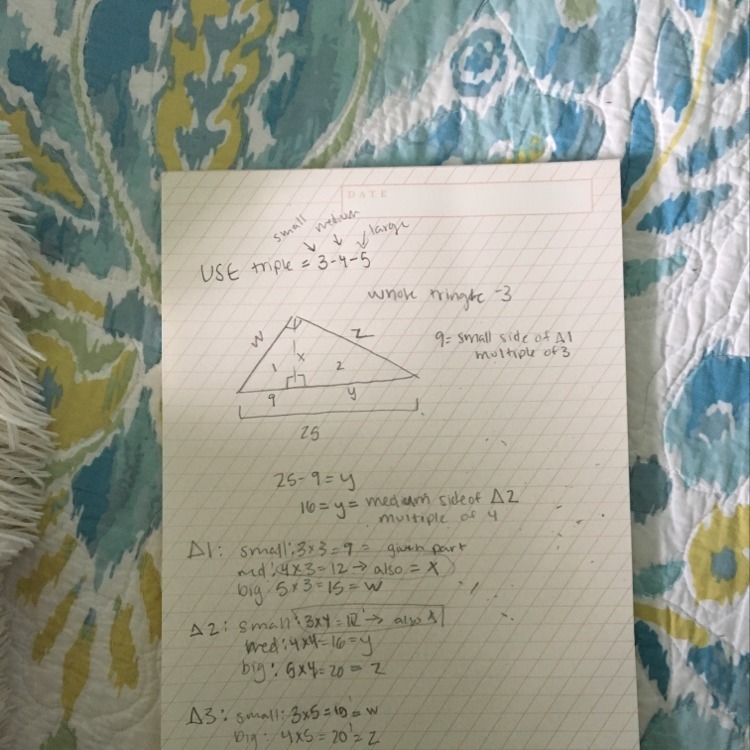 DATE
small medium large
USE triple = 3-4-5
whole tringle -3
W Z
9= small side of Δ1
multiple of 3
1 x 2
9 y
25
25-9=y
16=y= medium side of Δ2
multiple of 4
Δ1: small: 3x3=9= given part
md: 4x3=12 → also = X
big: 5x3=15=W
Δ2: small: 3x4=12 → also X
med: 4x4=16=y
big: 5x4=20=Z
Δ3: small: 3x5=15=W
big: 4x5=20=Z